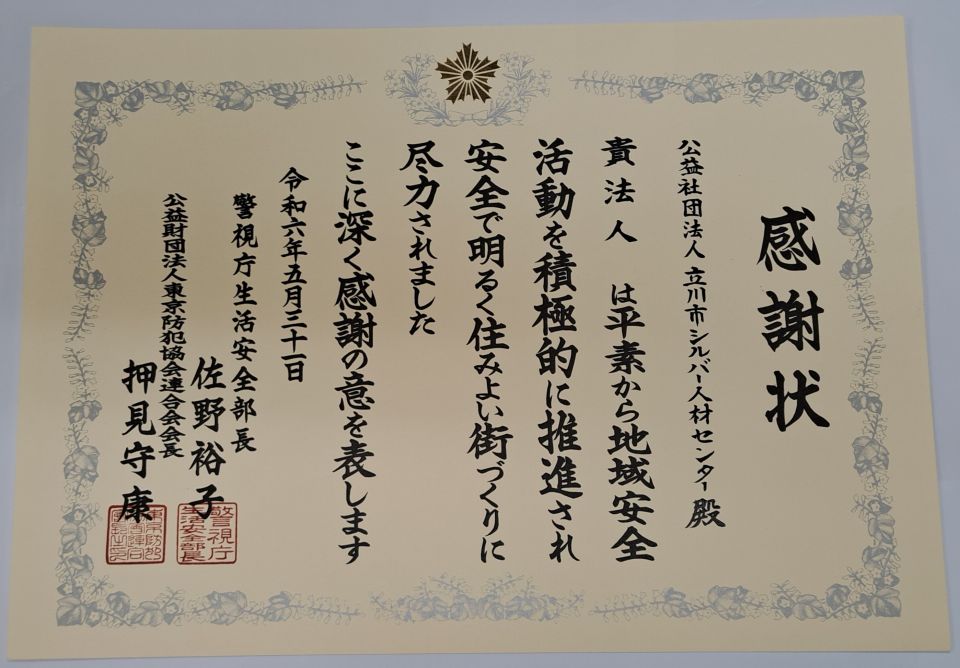 感謝状
公益社団法人 立川市シルバー人材センター 殿
貴法人 は平素から地域安全
活動を積極的に推進され
安全で明るく住みよい街づくりに
尽力されました
ここに深く感謝の意を表します
令和六年五月三十一日
警視庁生活安全部長
佐野裕子
警視庁
生活安全部長
公益財団法人東京防犯協会連合会会長
押見守康